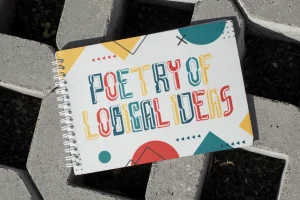 POETRY OF
LOGICAL IDEAS